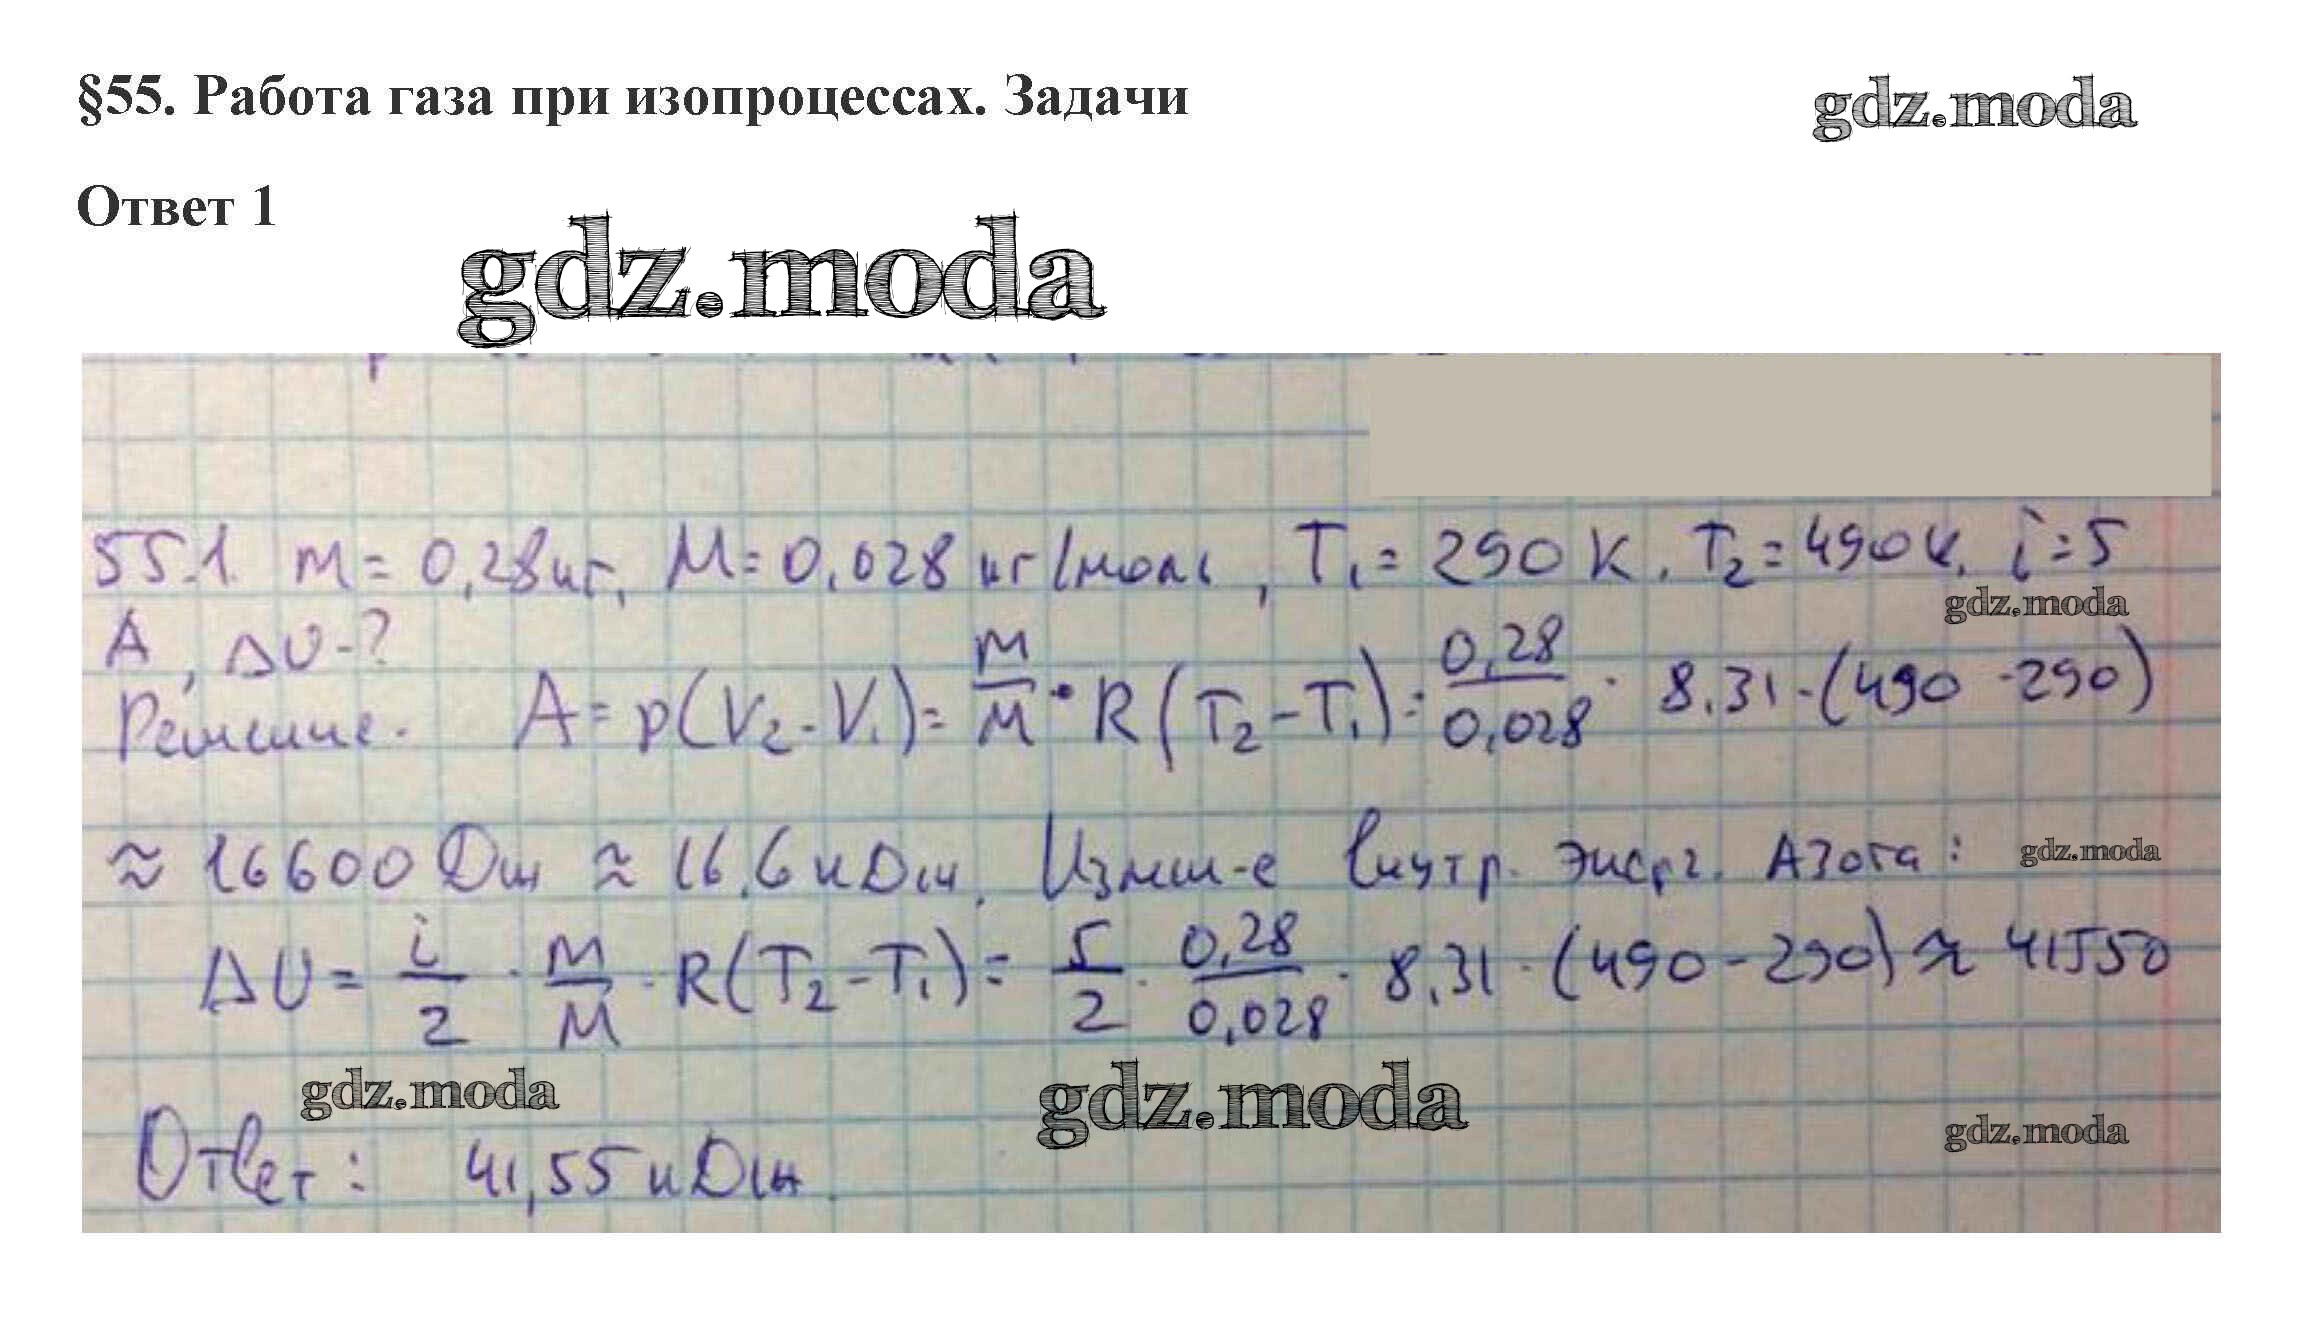 §55. Работа газа при изопроцессах. Задачи
gdz.moda
Ответ 1
gdz.moda
55.1. m = 0,28 кг, M = 0,028 кг/моль, T₁ = 290 K, T₂ = 490 K, i = 5
gdz.moda
A, ΔU-?
Решение. A = p(V₂ - V₁) = m/M · R(T₂ - T₁) = 0,28/0,028 · 8,31 · (490 - 290)
≈ 16600 Дж ≈ 16,6 кДж. Измен-е внутр. энерг. Азота:
gdz.moda
ΔU = i/2 · m/M · R(T₂ - T₁) = 5/2 · 0,28/0,028 · 8,31 · (490 - 290) ≈ 41550
gdz.moda
gdz.moda
gdz.moda
Ответ: 41,55 кДж